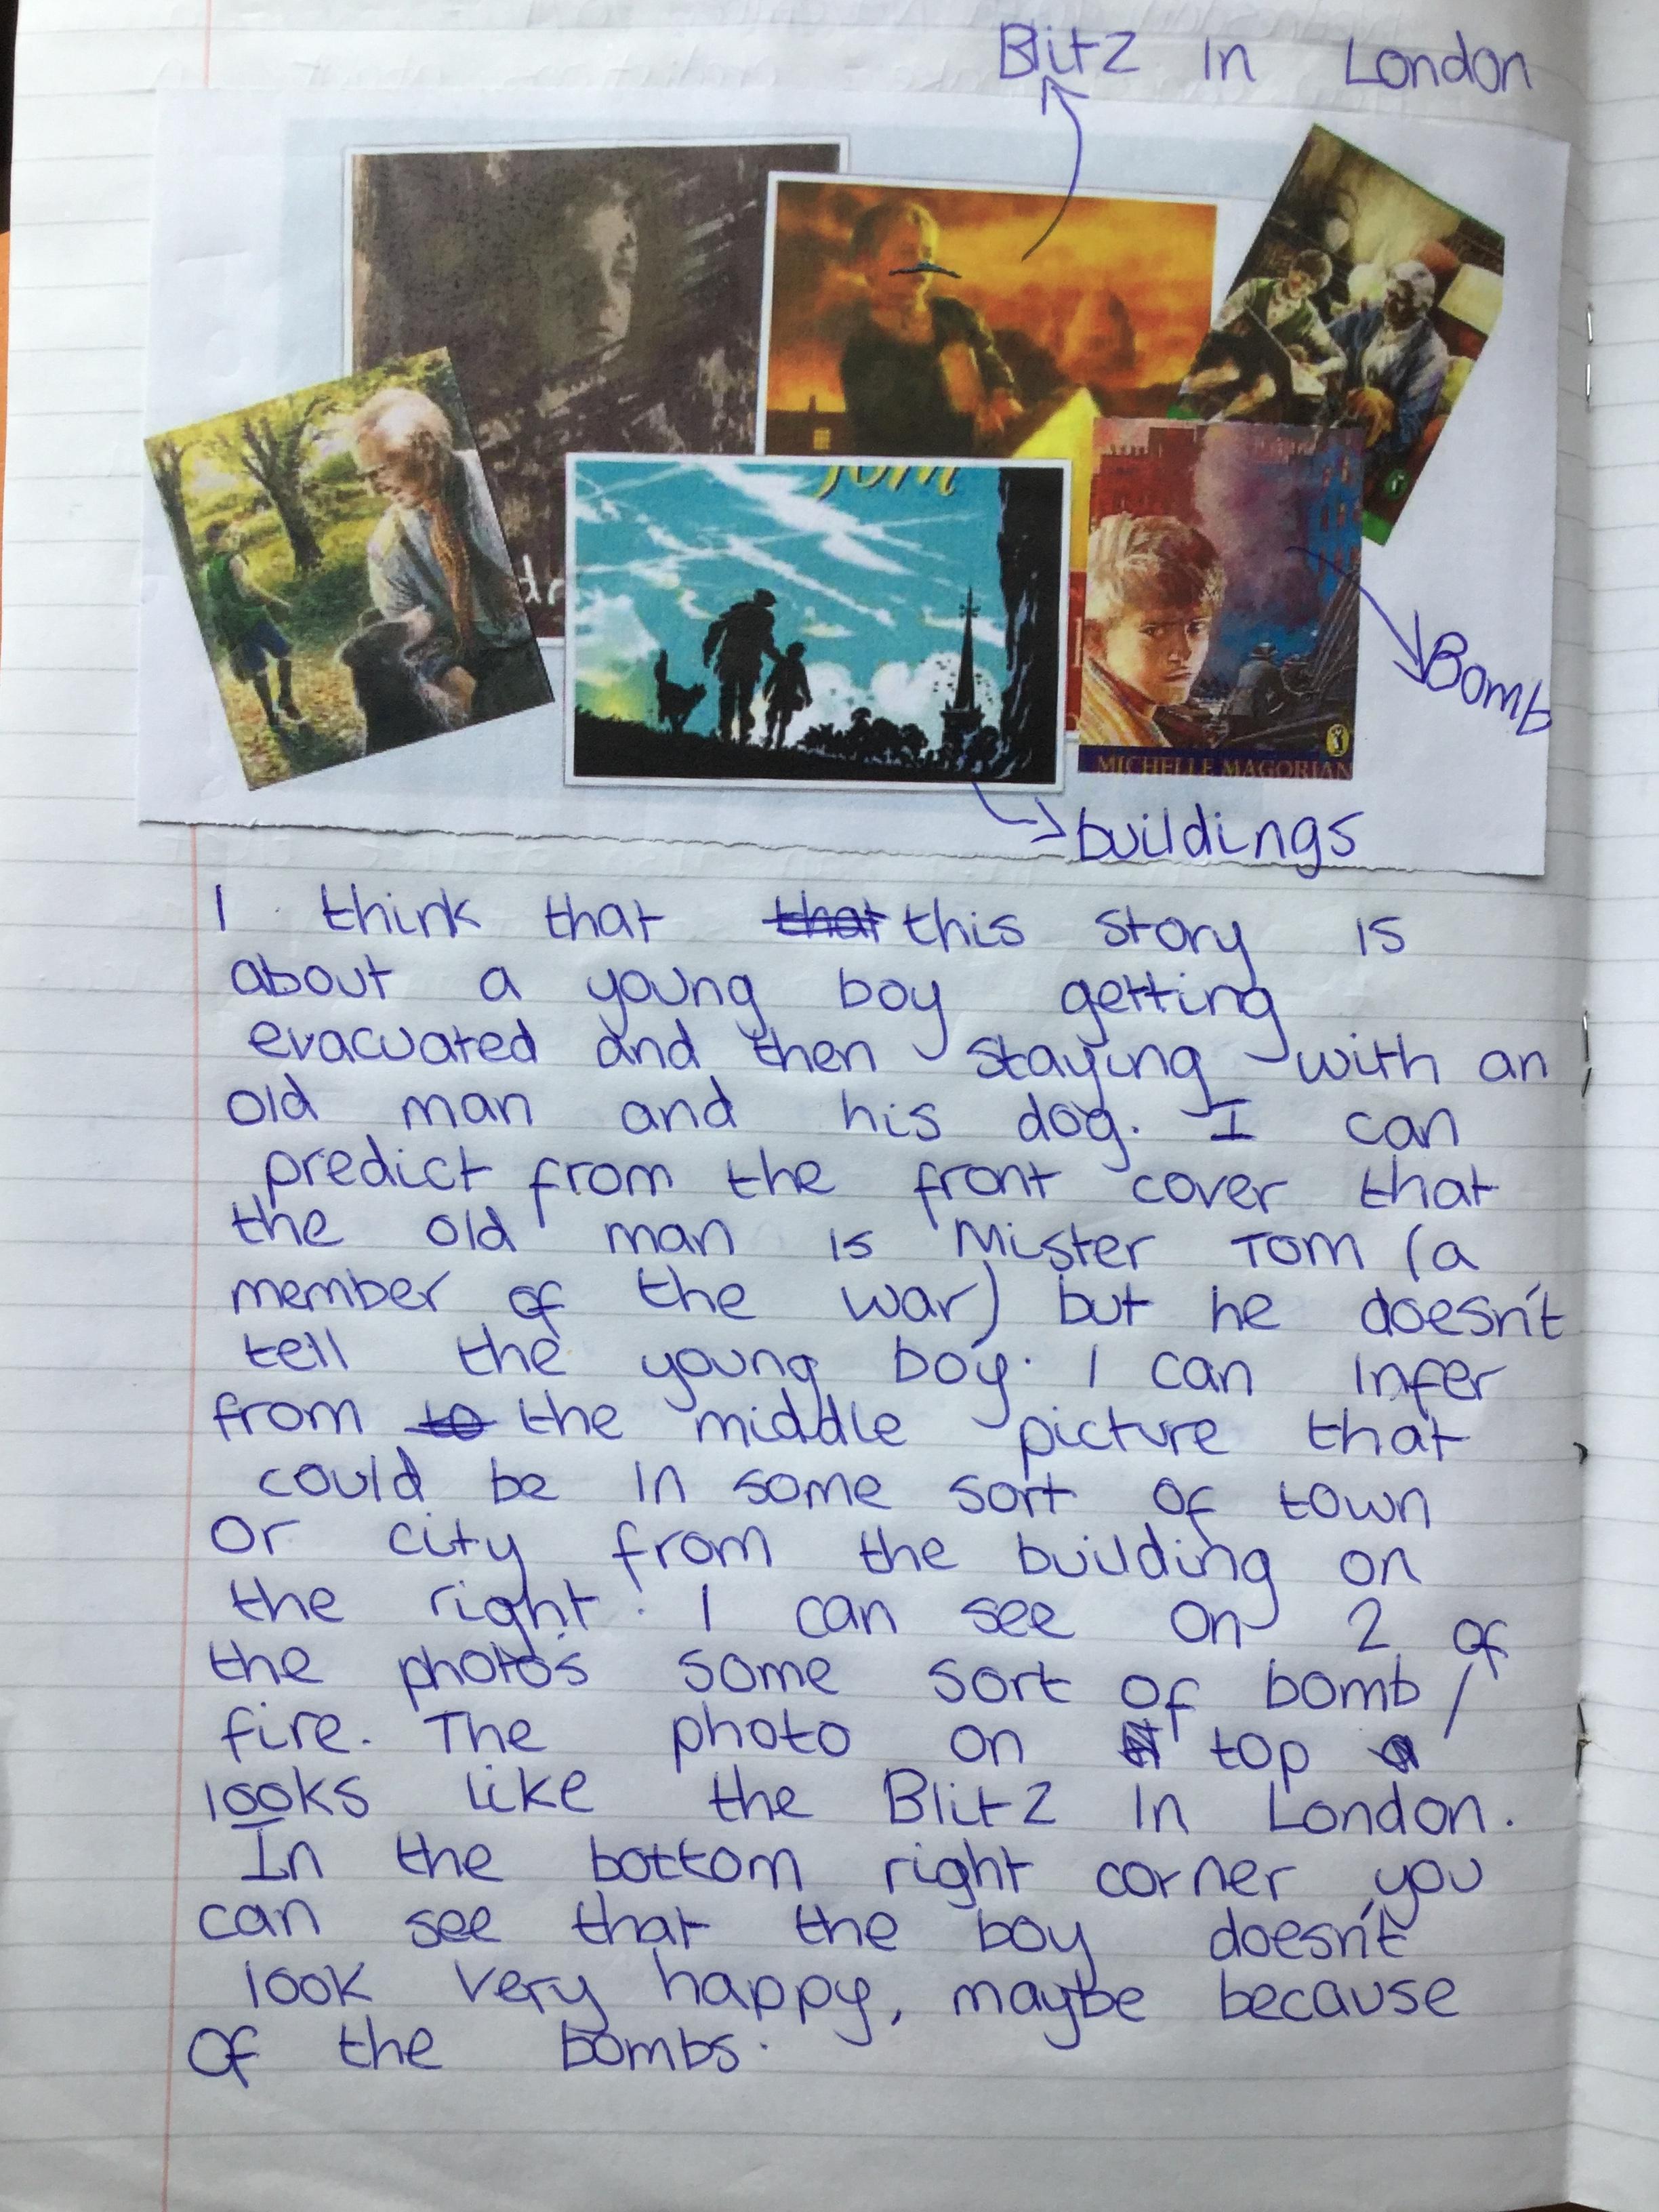 Blitz in London
Tom
dr
MICHELLE MAGORIAN
Bomb
buildings
I think that that this story is
about a young boy getting
evacuated and then staying with an
old man and his dog. I can
predict from the front cover that
the old man is Mister Tom (a
member of the war) but he doesn't
tell the young boy. I can infer
from to the middle picture that
could be in some sort of town
or city from the building on
the right. I can see on 2 of
the photo's some sort of bomb /
fire. The photo on top
looks like the Blitz in London.
In the bottom right corner you
can see that the boy doesn't
look very happy, maybe because
of the bombs.